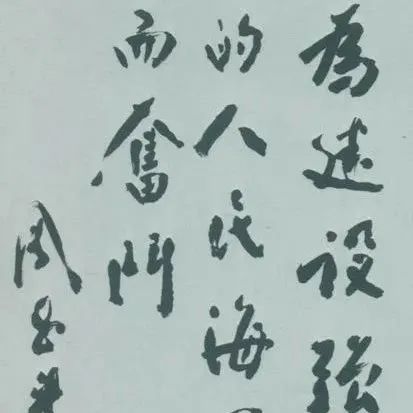 為建設強
的人民海
而奮鬥
周